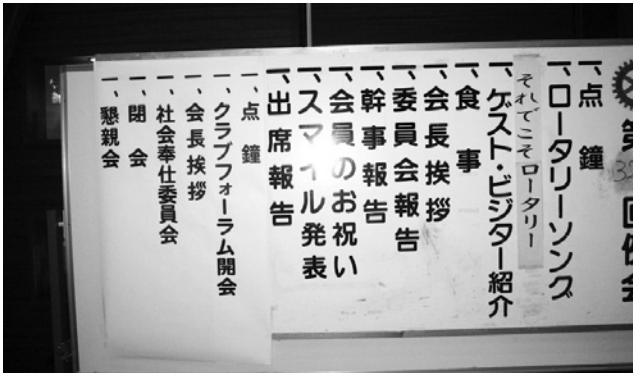 第 回例会
一、点鐘
一、ロータリーソング
それでこそロータリー
一、ゲスト・ビジター紹介
一、食事
一、会長挨拶
一、委員会報告
一、幹事報告
一、会員のお祝い
一、スマイル発表
一、出席報告
一、点鐘
一、クラブフォーラム開会
一、会長挨拶
一、社会奉仕委員会
一、閉会
一、懇親会